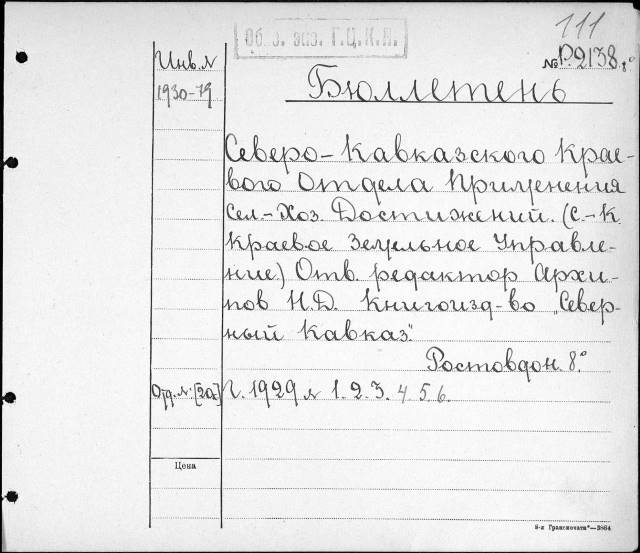 111
Об. з. экз. Г.Ц.К.П.
Инв. №
№ Р.2138. 8°
1930-79
Бюллетень
Северо-Кавказского Крае-
вого Отдела Применения
Сел-Хоз. Достижений. (С.-К.
Краевое Земельное Управле-
ние.) Отв. редактор Архи-
пов Н.Д. Книгоизд-во „Север-
ный Кавказ".
Ростовдон. 8°
Отд. №: [20к] Г. 1929 № 1. 2. 3. 4. 5. 6.
Цена
„Гранпечати"—3864